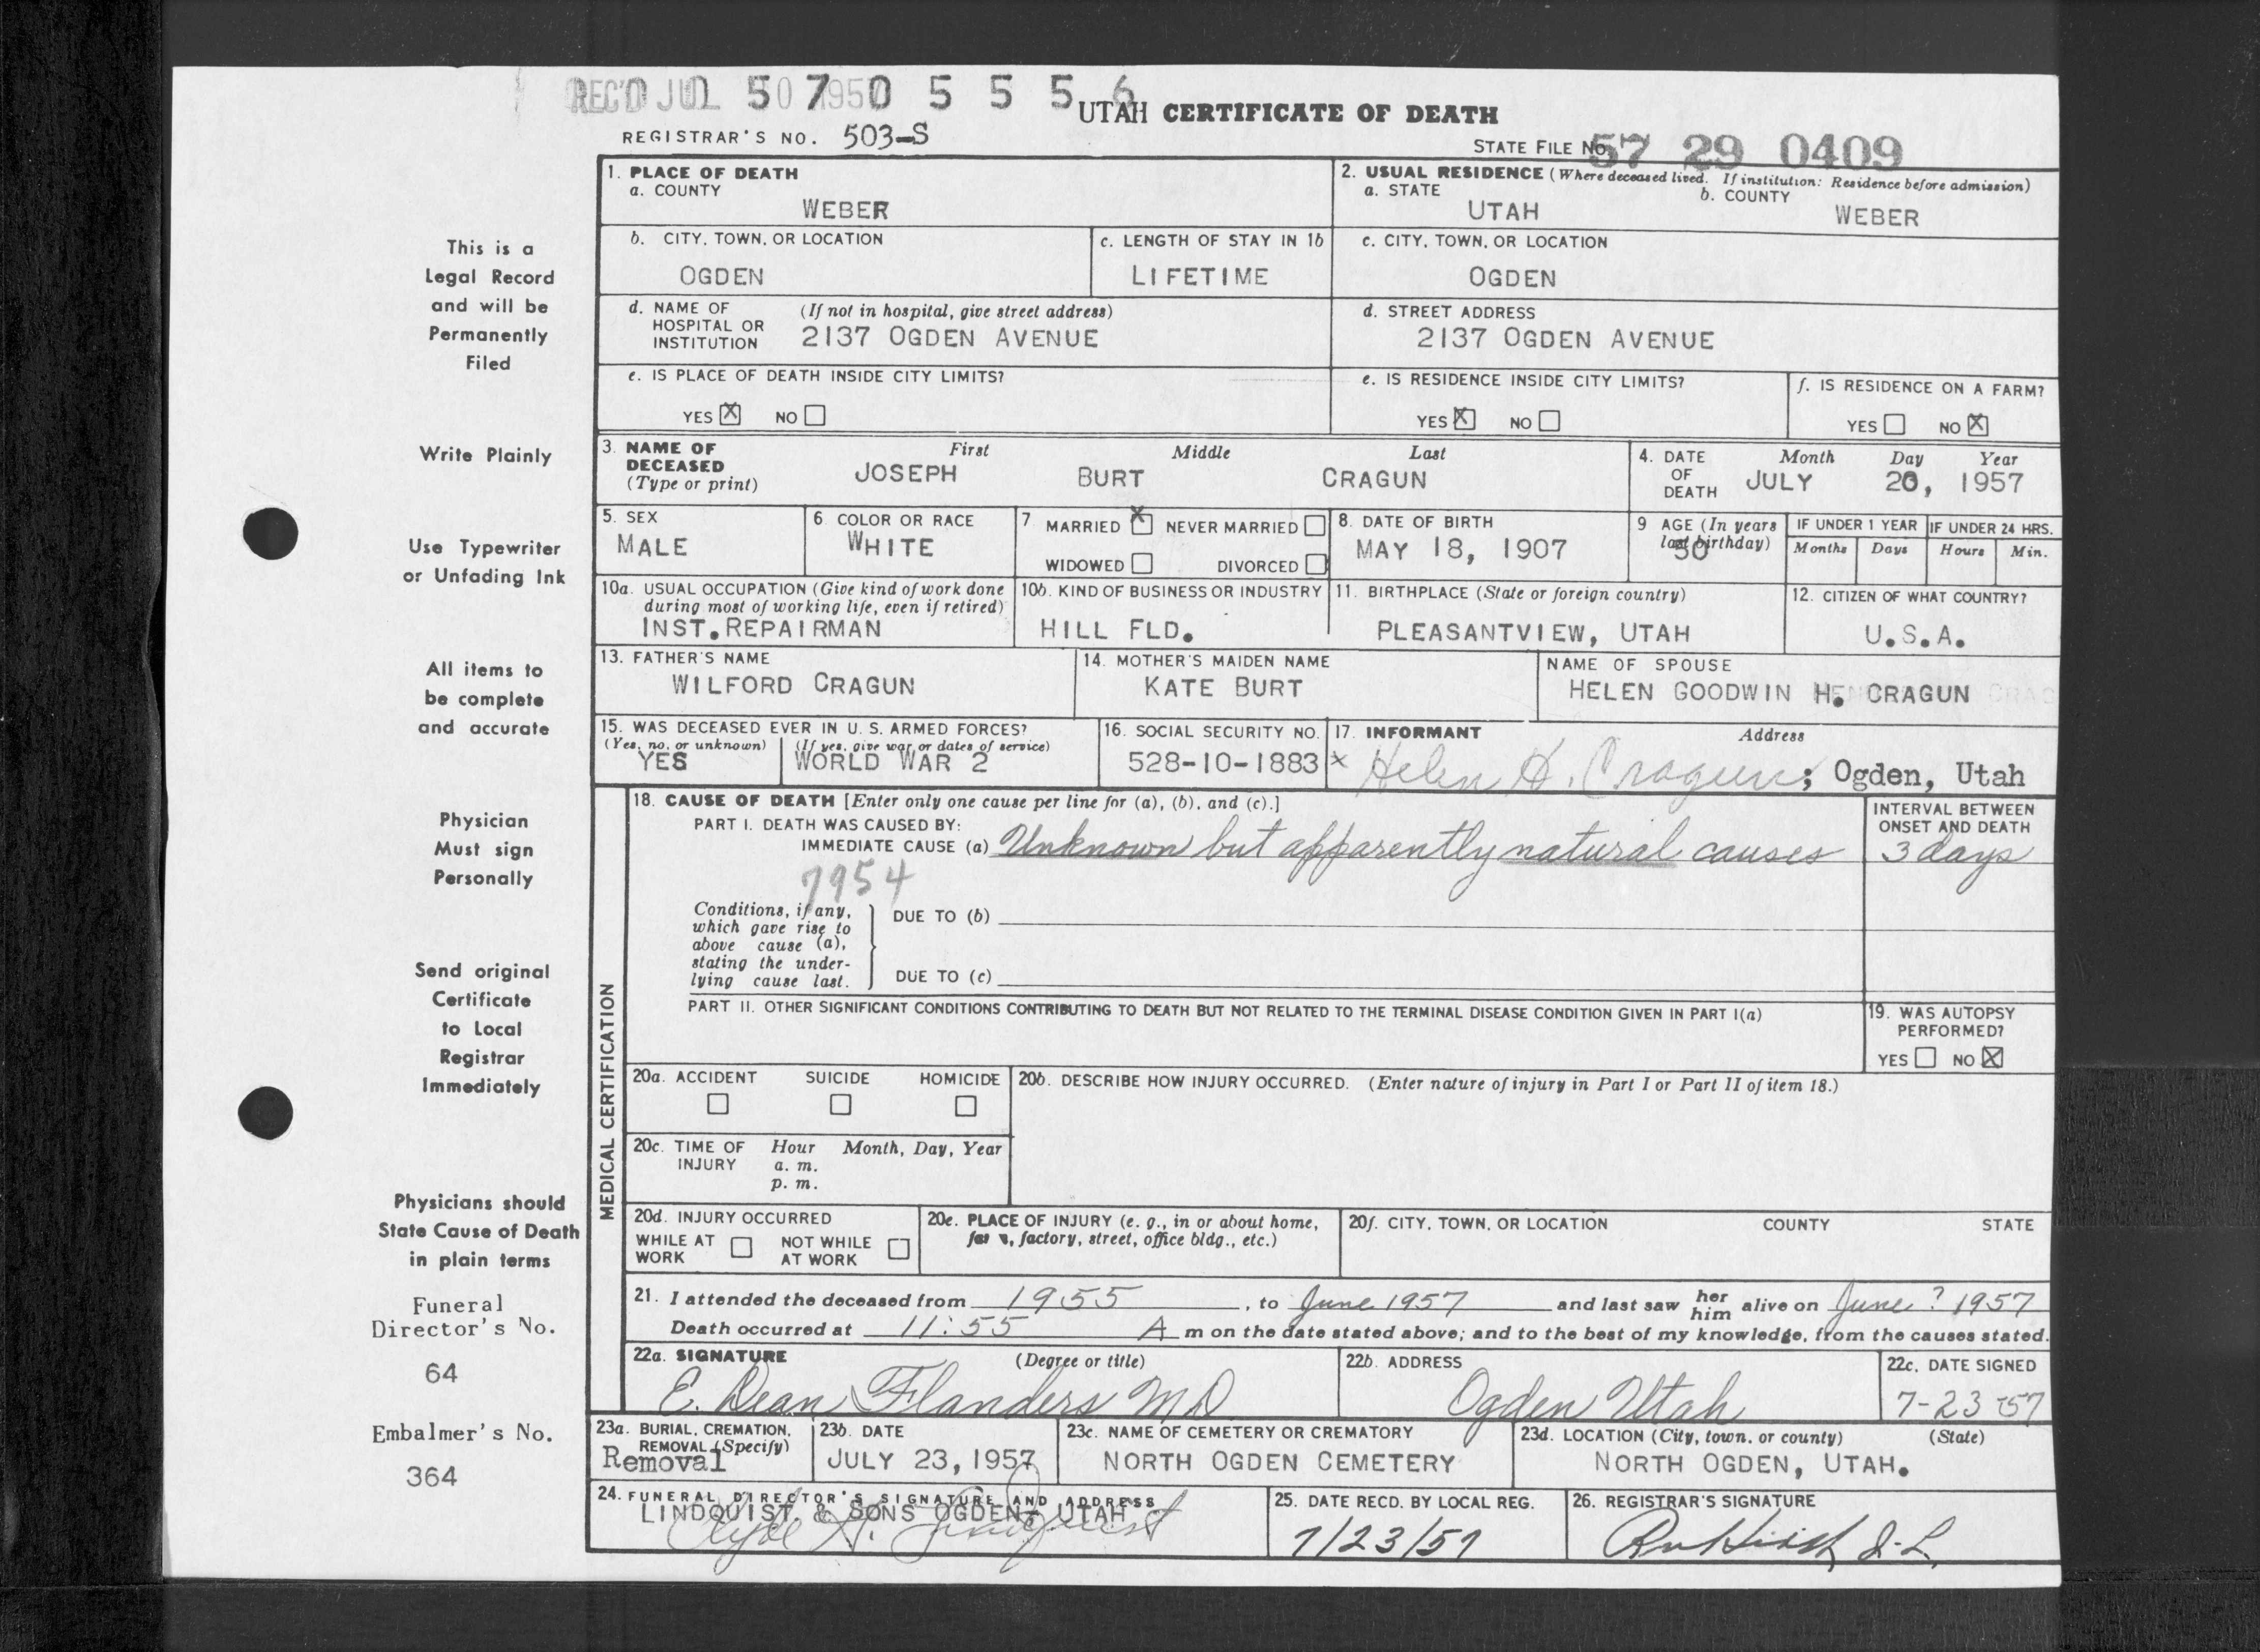 REC'D JUL 5 0 7 1950 5 5 5 6
UTAH CERTIFICATE OF DEATH
REGISTRAR'S NO. 503-S
STATE FILE NO. 57 29 0409
1. PLACE OF DEATH
a. COUNTY
WEBER
2. USUAL RESIDENCE (Where deceased lived. If institution: Residence before admission)
a. STATE
UTAH
b. COUNTY
WEBER
b. CITY, TOWN, OR LOCATION
OGDEN
c. LENGTH OF STAY IN 1b
LIFETIME
c. CITY, TOWN, OR LOCATION
OGDEN
d. NAME OF HOSPITAL OR INSTITUTION
(If not in hospital, give street address)
2137 OGDEN AVENUE
d. STREET ADDRESS
2137 OGDEN AVENUE
e. IS PLACE OF DEATH INSIDE CITY LIMITS?
YES X NO
e. IS RESIDENCE INSIDE CITY LIMITS?
YES X NO
f. IS RESIDENCE ON A FARM?
YES NO X
3. NAME OF DECEASED (Type or print)
First Middle Last
JOSEPH BURT CRAGUN
4. DATE OF DEATH
Month Day Year
JULY 20, 1957
5. SEX
MALE
6. COLOR OR RACE
WHITE
7. MARRIED X NEVER MARRIED
WIDOWED DIVORCED
8. DATE OF BIRTH
MAY 18, 1907
9. AGE (In years last birthday)
50
IF UNDER 1 YEAR
Months Days
IF UNDER 24 HRS.
Hours Min.
10a. USUAL OCCUPATION (Give kind of work done during most of working life, even if retired)
INST. REPAIRMAN
10b. KIND OF BUSINESS OR INDUSTRY
HILL FLD.
11. BIRTHPLACE (State or foreign country)
PLEASANTVIEW, UTAH
12. CITIZEN OF WHAT COUNTRY?
U.S.A.
13. FATHER'S NAME
WILFORD CRAGUN
14. MOTHER'S MAIDEN NAME
KATE BURT
NAME OF SPOUSE
HELEN GOODWIN H. CRAGUN
15. WAS DECEASED EVER IN U. S. ARMED FORCES?
(Yes, no, or unknown) (If yes, give war or dates of service)
YES WORLD WAR 2
16. SOCIAL SECURITY NO.
528-10-1883
17. INFORMANT Address
x Helen H. Cragun; Ogden, Utah
MEDICAL CERTIFICATION
18. CAUSE OF DEATH [Enter only one cause per line for (a), (b), and (c).]
PART I. DEATH WAS CAUSED BY:
IMMEDIATE CAUSE (a) Unknown but apparently natural causes
INTERVAL BETWEEN ONSET AND DEATH
3 days
7954
Conditions, if any, which gave rise to above cause (a), stating the underlying cause last.
DUE TO (b)
DUE TO (c)
PART II. OTHER SIGNIFICANT CONDITIONS CONTRIBUTING TO DEATH BUT NOT RELATED TO THE TERMINAL DISEASE CONDITION GIVEN IN PART I(a)
19. WAS AUTOPSY PERFORMED?
YES NO X
20a. ACCIDENT SUICIDE HOMICIDE
20b. DESCRIBE HOW INJURY OCCURRED. (Enter nature of injury in Part I or Part II of item 18.)
20c. TIME OF INJURY
Hour Month, Day, Year
a. m.
p. m.
20d. INJURY OCCURRED
WHILE AT WORK NOT WHILE AT WORK
20e. PLACE OF INJURY (e. g., in or about home, farm, factory, street, office bldg., etc.)
20f. CITY, TOWN, OR LOCATION COUNTY STATE
21. I attended the deceased from 1955, to June 1957 and last saw her him alive on June ? 1957
Death occurred at 11:55 A m on the date stated above; and to the best of my knowledge, from the causes stated.
22a. SIGNATURE (Degree or title)
E. Dean Flanders MD
22b. ADDRESS
Ogden Utah
22c. DATE SIGNED
7-23-57
23a. BURIAL, CREMATION, REMOVAL (Specify)
Removal
23b. DATE
JULY 23, 1957
23c. NAME OF CEMETERY OR CREMATORY
NORTH OGDEN CEMETERY
23d. LOCATION (City, town, or county) (State)
NORTH OGDEN, UTAH.
24. FUNERAL DIRECTOR'S SIGNATURE AND ADDRESS
LINDQUIST & SONS OGDEN, UTAH
25. DATE RECD. BY LOCAL REG.
7/23/57
26. REGISTRAR'S SIGNATURE
This is a
Legal Record
and will be
Permanently
Filed
Write Plainly
Use Typewriter
or Unfading Ink
All items to
be complete
and accurate
Physician
Must sign
Personally
Send original
Certificate
to Local
Registrar
Immediately
Physicians should
State Cause of Death
in plain terms
Funeral
Director's No.
64
Embalmer's No.
364